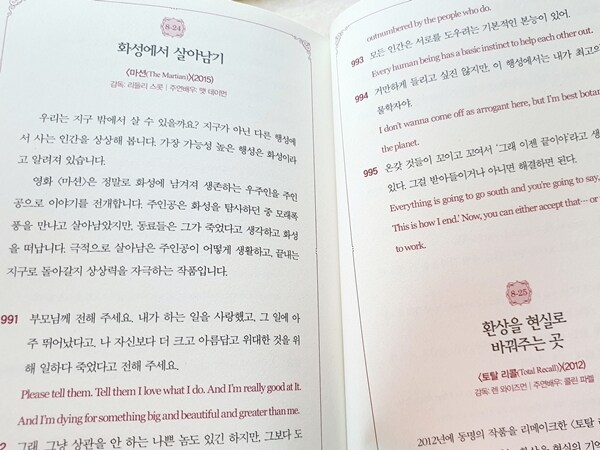 8-24
화성에서 살아남기
〈마션(The Martian)〉(2015)
감독: 리들리 스콧 | 주연배우: 맷 데이먼
우리는 지구 밖에서 살 수 있을까요? 지구가 아닌 다른 행성에
서 사는 인간을 상상해 봅니다. 가장 가능성 높은 행성은 화성이라
고 알려져 있습니다.
영화 〈마션〉은 정말로 화성에 남겨져 생존하는 우주인을 주인
공으로 이야기를 전개합니다. 주인공은 화성을 탐사하던 중 모래폭
풍을 만나고 살아남았지만, 동료들은 그가 죽었다고 생각하고 화성
을 떠납니다. 극적으로 살아남은 주인공이 어떻게 생활하고, 끝내는
지구로 돌아갈지 상상력을 자극하는 작품입니다.
991 부모님께 전해 주세요. 내가 하는 일을 사랑했고, 그 일에 아
주 뛰어났다고. 나 자신보다 더 크고 아름답고 위대한 것을 위
해 일하다 죽었다고 전해 주세요.
Please tell them. Tell them I love what I do. And I'm really good at It.
And I'm dying for something big and beautiful and greater than me.
2 그래, 그냥 상관을 안 하는 나쁜 놈도 있긴 하지만, 그보다 도
outnumbered by the people who do.
993 모든 인간은 서로를 도우려는 기본적인 본능이 있어.
Every human being has a basic instinct to help each other out.
994 거만하게 들리고 싶진 않지만, 이 행성에서는 내가 최고의
물학자야.
I don't wanna come off as arrogant here, but I'm best botan
the planet.
995 온갖 것들이 꼬이고 꼬여서 '그래 이젠 끝이야'라고 생
있다. 그걸 받아들이거나 아니면 해결하면 된다.
Everything is going to go south and you're going to say,
This is how I end.' Now, you can either accept that… or
to work.
8-25
환상을 현실로
바꿔주는 곳
〈토탈 리콜(Total Recall)〉(2012)
감독: 렌 와이즈먼 | 주연배우: 콜린 파렐
2012년에 동명의 작품을 리메이크한 〈토탈
환상을 현실의 기억